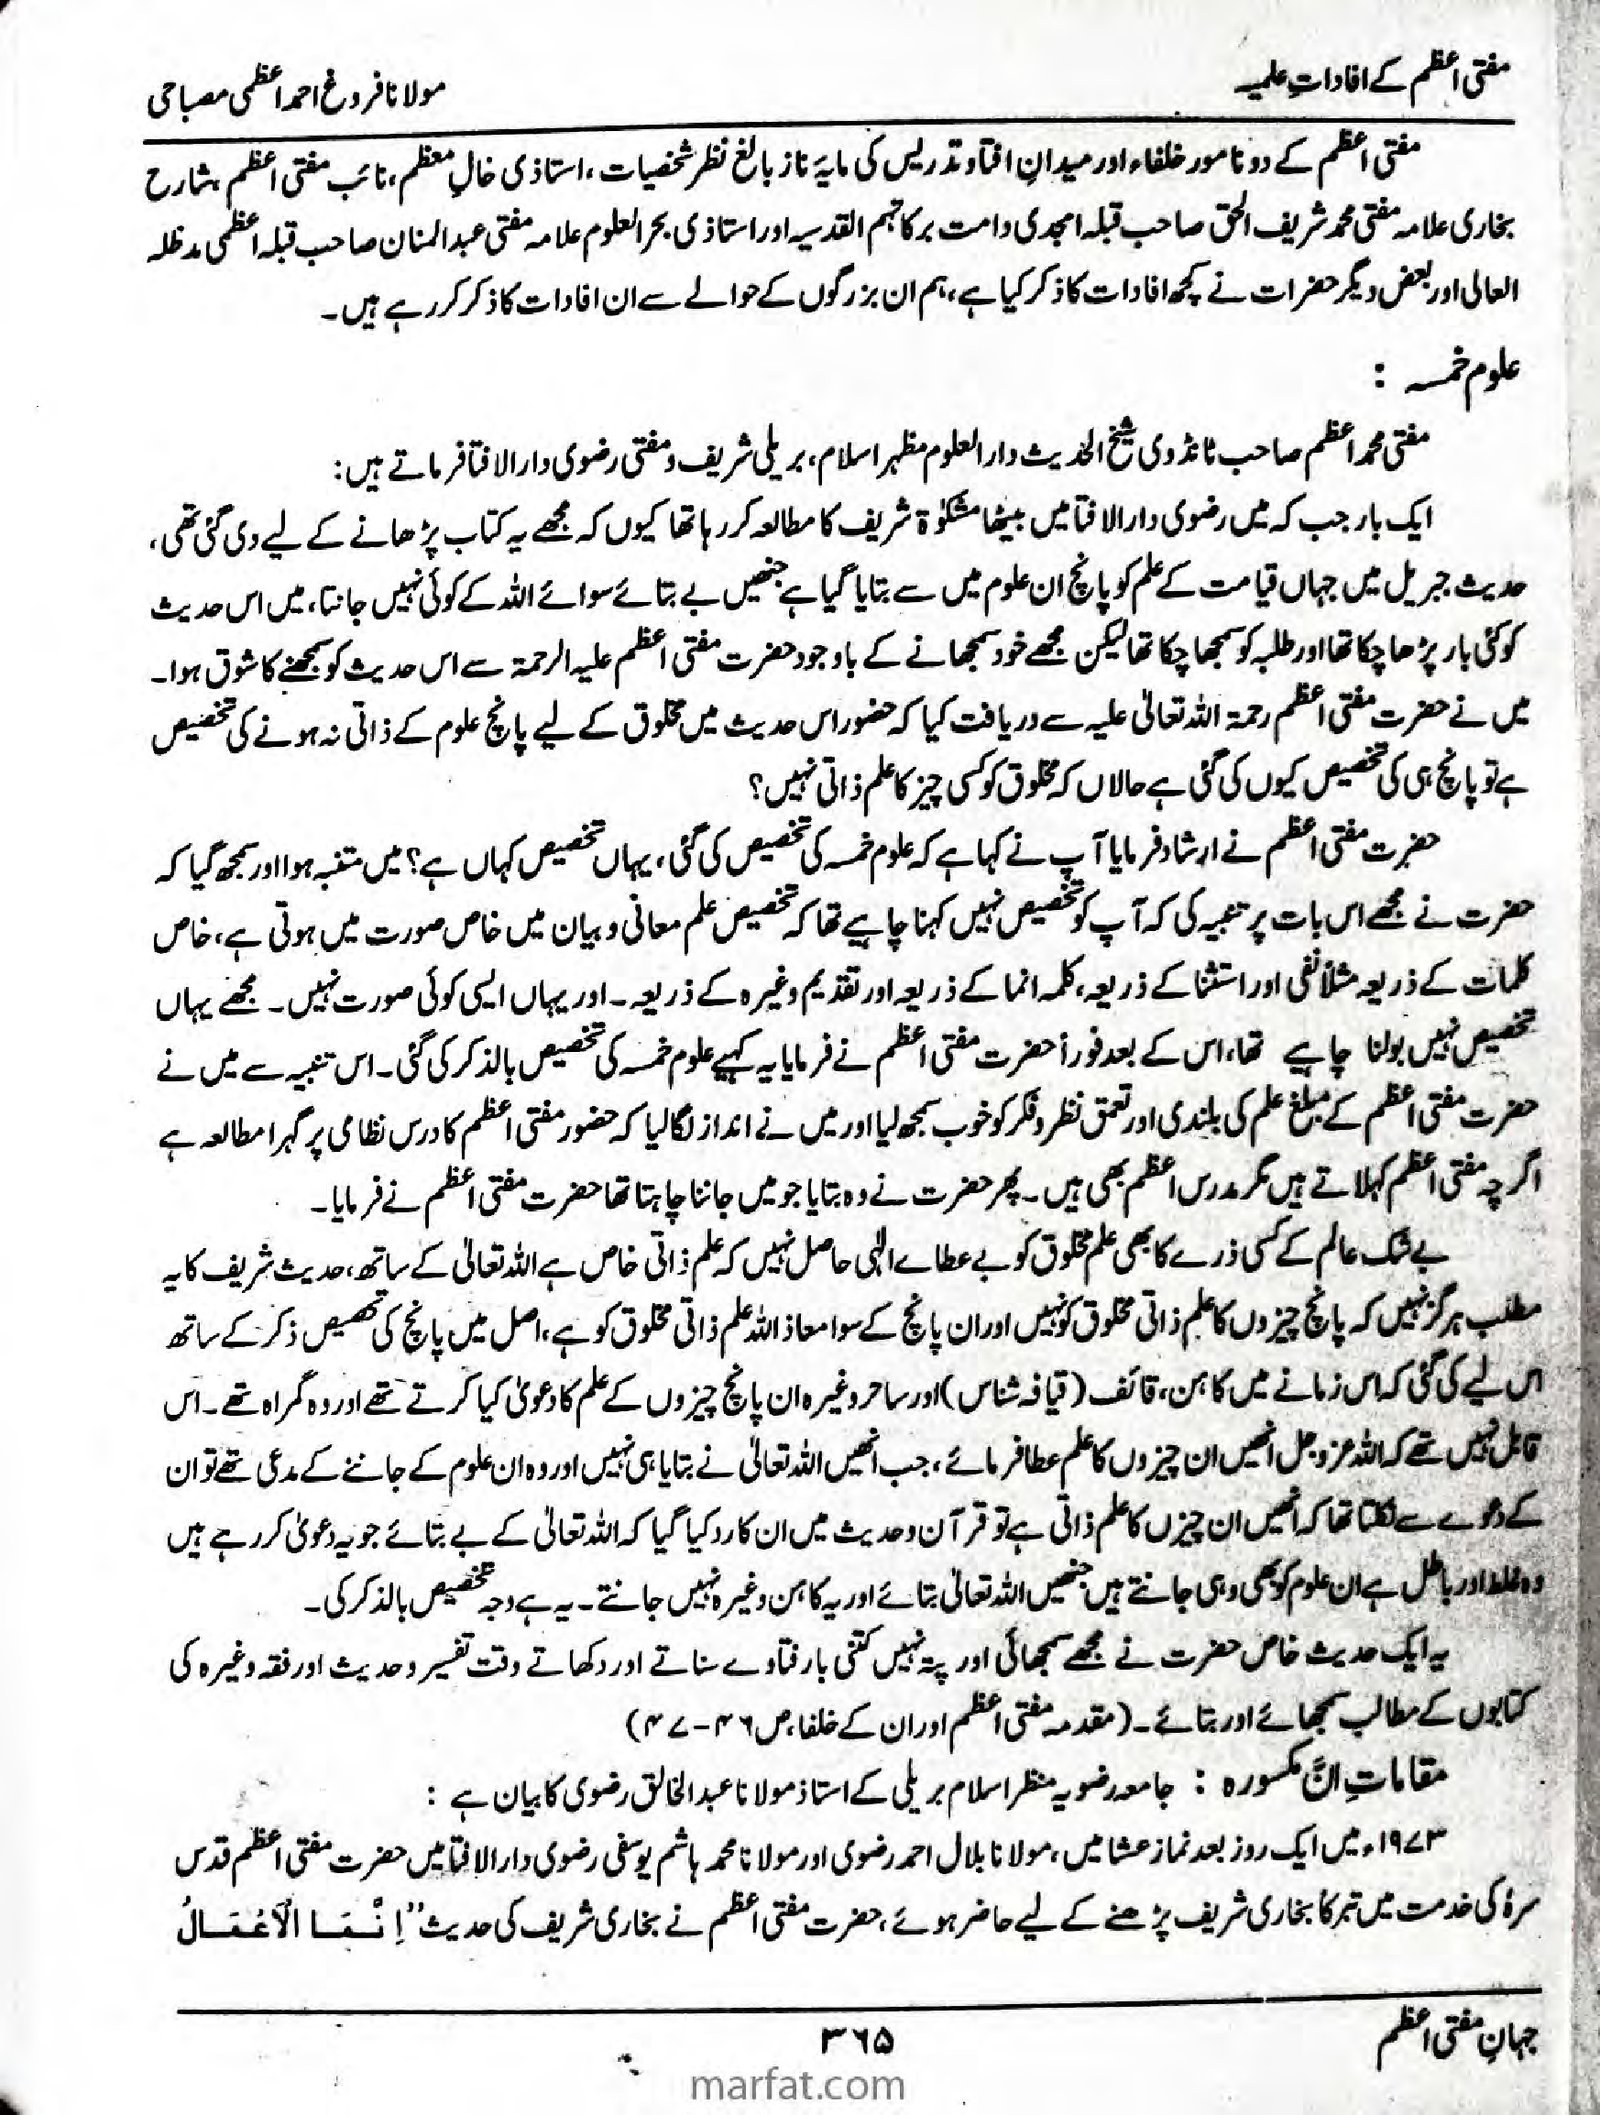 مفتی اعظم کے افاداتِ علمیہ
مولانا فروغ احمد اعظمی مصباحی
مفتی اعظم کے دو نامور خلفاء اور میدانِ افتا و تدریس کی مایۂ ناز بالغ نظر شخصیات، استاذی خالِ معظم، نائب مفتی اعظم، شارح
بخاری علامہ مفتی محمد شریف الحق صاحب قبلہ امجدی دامت برکاتہم القدسیہ اور استاذی بحر العلوم علامہ مفتی عبد المنان صاحب قبلہ اعظمی مدظلہ
العالی اور بعض دیگر حضرات نے کچھ افادات کا ذکر کیا ہے، ہم ان بزرگوں کے حوالے سے ان افادات کا ذکر کر رہے ہیں۔
علوم خمسہ :
مفتی محمد اعظم صاحب ٹانڈوی شیخ الحدیث دار العلوم مظہر اسلام، بریلی شریف و مفتی رضوی دار الافتا فرماتے ہیں:
ایک بار جب کہ میں رضوی دار الافتا میں بیٹھا مشکوٰۃ شریف کا مطالعہ کر رہا تھا کیوں کہ مجھے یہ کتاب پڑھانے کے لیے دی گئی تھی،
حدیث جبریل میں جہاں قیامت کے علم کو پانچ ان علوم میں سے بتایا گیا ہے جنھیں بے بتائے سوائے اللہ کے کوئی نہیں جانتا، میں اس حدیث
کو کئی بار پڑھا چکا تھا اور طلبہ کو سمجھا چکا تھا لیکن مجھے خود سمجھانے کے باوجود حضرت مفتی اعظم علیہ الرحمۃ سے اس حدیث کو سمجھنے کا شوق ہوا۔
میں نے حضرت مفتی اعظم رحمۃ اللہ تعالیٰ علیہ سے دریافت کیا کہ حضور اس حدیث میں مخلوق کے لیے پانچ علوم کے ذاتی نہ ہونے کی تخصیص
ہے تو پانچ ہی کی تخصیص کیوں کی گئی ہے حالاں کہ مخلوق کو کسی چیز کا علم ذاتی نہیں؟
حضرت مفتی اعظم نے ارشاد فرمایا آپ نے کہا ہے کہ علوم خمسہ کی تخصیص کی گئی، یہاں تخصیص کہاں ہے؟ میں متنبہ ہوا اور سمجھ گیا کہ
حضرت نے مجھے اس بات پر تنبیہ کی کہ آپ کو تخصیص نہیں کہنا چاہیے تھا کہ تخصیص علم معانی و بیان میں خاص صورت میں ہوتی ہے، خاص
کلمات کے ذریعہ مثلاً نفی اور استثنا کے ذریعہ، کلمہ انما کے ذریعہ اور تقدیم وغیرہ کے ذریعہ۔ اور یہاں ایسی کوئی صورت نہیں۔ مجھے یہاں
تخصیص نہیں بولنا چاہیے تھا، اس کے بعد فوراً حضرت مفتی اعظم نے فرمایا یہ کہیے علوم خمسہ کی تخصیص بالذکر کی گئی۔ اس تنبیہ سے میں نے
حضرت مفتی اعظم کے مبلغ علم کی بلندی اور تعمق نظر و فکر کو خوب سمجھ لیا اور میں نے انداز لگا لیا کہ حضور مفتی اعظم کا درس نظامی پر گہرا مطالعہ ہے
اگر چہ مفتی اعظم کہلاتے ہیں مگر مدرس اعظم بھی ہیں۔ پھر حضرت نے وہ بتایا جو میں جاننا چاہتا تھا حضرت مفتی اعظم نے فرمایا۔
بے شک عالم کے کسی ذرے کا بھی علم مخلوق کو بے عطاے الٰہی حاصل نہیں کہ علم ذاتی خاص ہے اللہ تعالیٰ کے ساتھ، حدیث شریف کا یہ
مطلب ہرگز نہیں کہ پانچ چیزوں کا علم ذاتی مخلوق کو نہیں اور ان پانچ کے سوا معاذ اللہ علم ذاتی مخلوق کو ہے، اصل میں پانچ کی تخصیص ذکر کے ساتھ
اس لیے کی گئی کہ اس زمانے میں کاہن، قائف (قیافہ شناس) اور ساحر وغیرہ ان پانچ چیزوں کے علم کا دعویٰ کیا کرتے تھے اور وہ گمراہ تھے۔ اس
قابل نہیں تھے کہ اللہ عزوجل انھیں ان چیزوں کا علم عطا فرمائے، جب انھیں اللہ تعالیٰ نے بتایا ہی نہیں اور وہ ان علوم کے جاننے کے مدعی تھے تو ان
کے دعوے سے نکلتا تھا کہ انھیں ان چیزں کا علم ذاتی ہے تو قرآن و حدیث میں ان کا رد کیا گیا کہ اللہ تعالیٰ کے بے بتائے جو یہ دعویٰ کر رہے ہیں
وہ غلط اور باطل ہے ان علوم کو بھی وہی جانتے ہیں جنھیں اللہ تعالیٰ بتائے اور یہ کاہن وغیرہ نہیں جانتے۔ یہ ہے وجہ تخصیص بالذکر کی۔
یہ ایک حدیث خاص حضرت نے مجھے سمجھائی اور پتہ نہیں کتنی بار فتاوے سناتے اور دکھاتے وقت تفسیر و حدیث اور فقہ وغیرہ کی
کتابوں کے مطالب سمجھائے اور بتائے۔ (مقدمہ مفتی اعظم اور ان کے خلفا، ص ۴۶-۴۷)
مقاماتِ انَّ مکسورہ : جامعہ رضویہ منظر اسلام بریلی کے استاذ مولانا عبد الخالق رضوی کا بیان ہے :
۱۹۷۳ء میں ایک روز بعد نماز عشا میں، مولانا بلال احمد رضوی اور مولانا محمد ہاشم یوسفی رضوی دار الافتا میں حضرت مفتی اعظم قدس
سرہٗ کی خدمت میں تبرکاً بخاری شریف پڑھنے کے لیے حاضر ہوئے، حضرت مفتی اعظم نے بخاری شریف کی حدیث ”اِنَّمَا الْاَعْمَالُ
جہانِ مفتی اعظم
۳۶۵
marfat.com